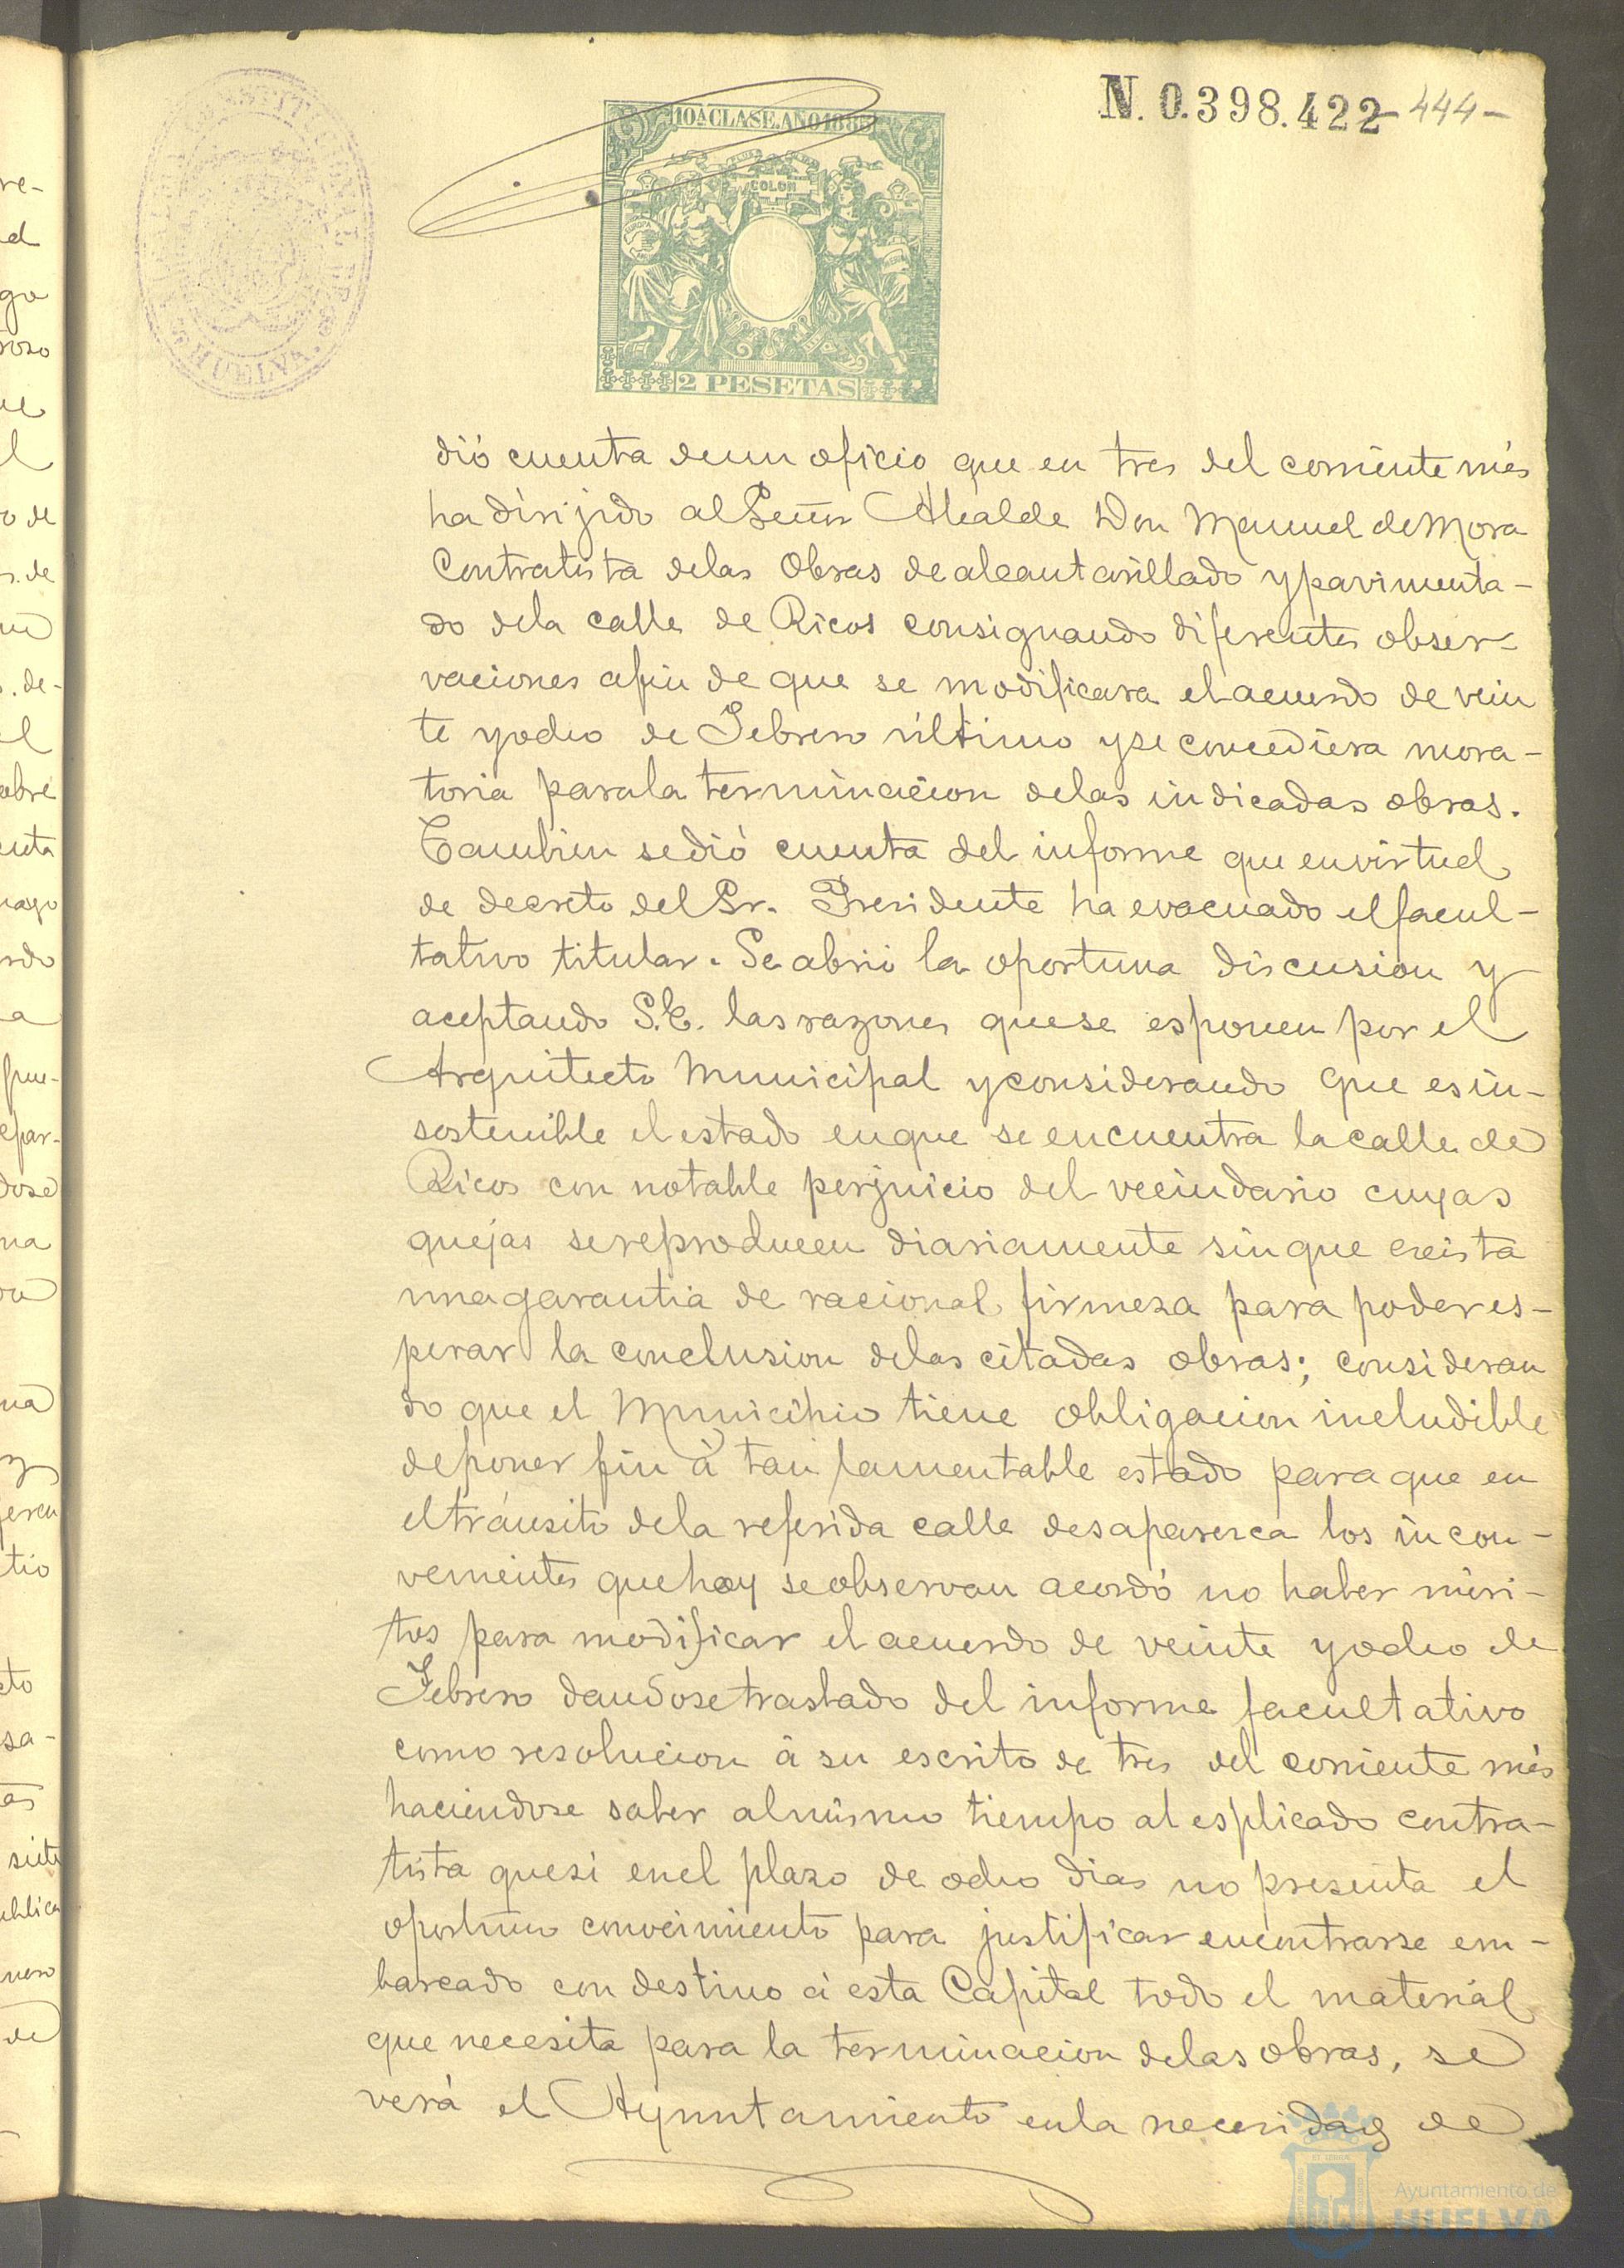 N. 0.398.422 - 444 -
10ª CLASE. AÑO 188
COLON
2 PESETAS
CONSTITUCIONAL DE
HUELVA.
dió cuenta de un oficio que en tres del corriente més
ha dirijido al Señor Alcalde Don Manuel de Mora
Contratista de las Obras de alcantarillado y pavimenta-
do de la calle de Ricos consignando diferentes obser-
vaciones afin de que se modificara el acuerdo de vein
te y ocho de Febrero último y se concediera mora-
toria para la terminacion de las indicadas obras.
Tambien se dió cuenta del informe que en virtud
de decreto del Sr. Presidente ha evacuado el facul-
tativo titular. Se abrió la oportuna discusion y
aceptando S.E. las razones que se esponen por el
Arquitecto Municipal y considerando que es in-
sostenible el estado en que se encuentra la calle de
Ricos con notable perjuicio del vecindario cuyas
quejas se reproducen diariamente sin que exista
una garantia de racional firmeza para poder es-
perar la conclusion de las citadas obras; consideran
do que el Municipio tiene obligacion ineludible
de poner fin á tan lamentable estado para que en
el tránsito de la referida calle desaparezca los incon-
venientes que hoy se observan acordó no haber méri-
tos para modificar el acuerdo de veinte y ocho de
Febrero dandose traslado del informe facultativo
como resolucion á su escrito de tres del corriente més
haciendose saber al mismo tiempo al esplicado contra-
tista que si en el plazo de ocho dias no presenta el
oportuno conocimiento para justificar encontrarse em-
barcado con destino á esta Capital todo el material
que necesita para la terminacion de las obras, se
verá el Ayuntamiento en la necesidad de
Ayuntamiento de
HUELVA